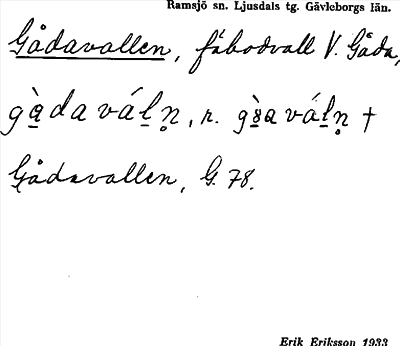 Ramsjö sn. Ljusdals tg. Gävleborgs län.
Gådavallen, fäbodvall V. Gåda,
gàda váln, r. váln †
Gådavallen, G. 78.
Erik Eriksson 1933